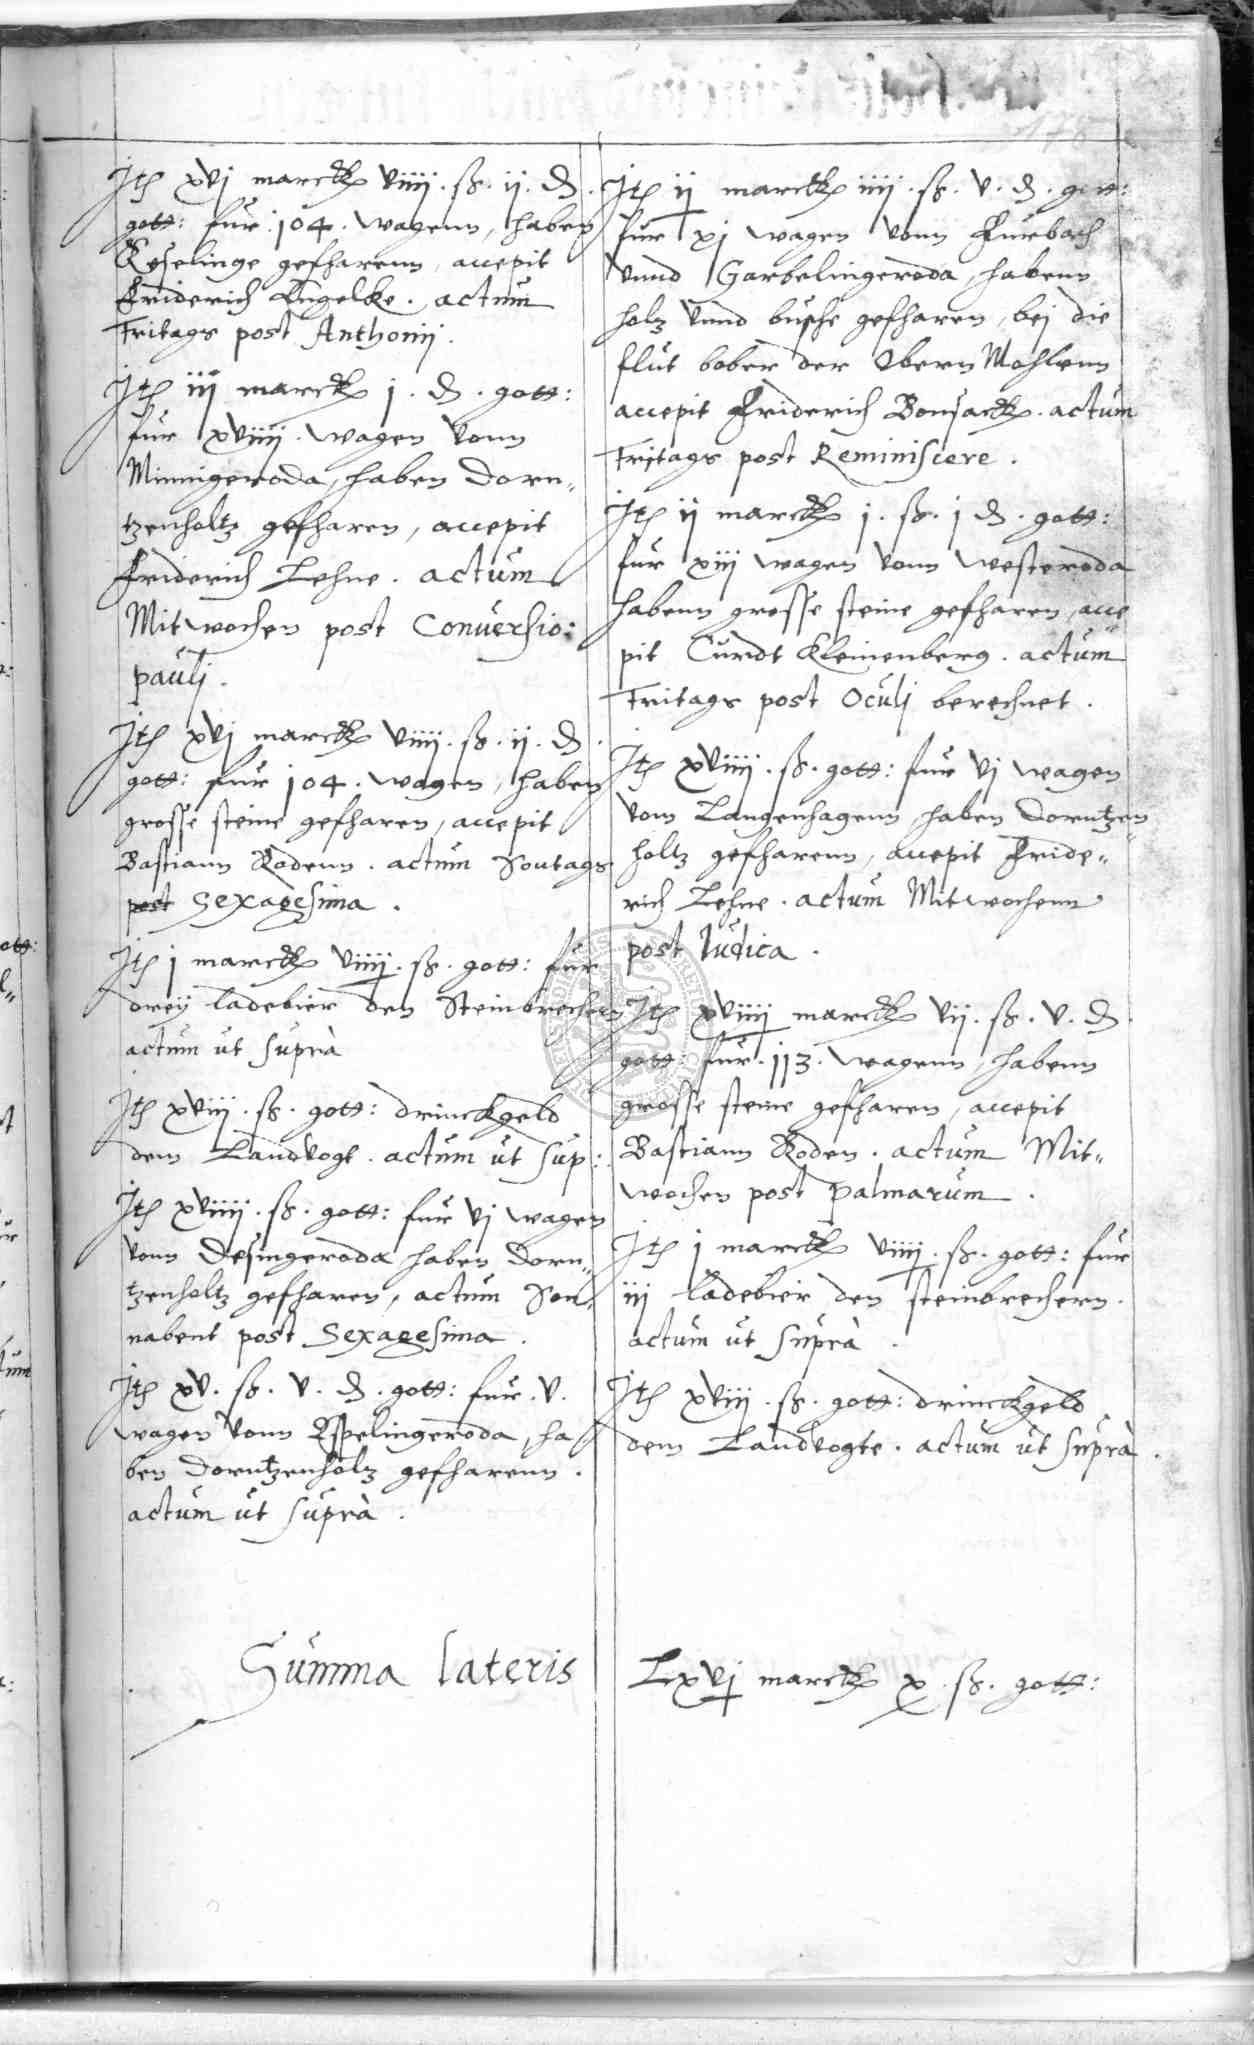 Jtem xvj marck viiij. ß. ij. d.
gott: fur 104. wagenn, haben
Roselinge gefharenn, accepit
Friderich Engelke. actum
Fritags post Anthonij.
Jtem iij marck j. d. gott:
fur xviiij. wagen vonn
Minnigeroda, haben dorn„
tzenholtz gefharen, accepit
Friderich Lehne. actum
Mitwochen post Conuersio:
pauli.
Jtem xvj marck viiij. ß. ij. d.
gott: fur 104. wagen, haben
grosse steine gefharen, accepit
Bastiann Rodenn. actum Sontags
post Sexagesima.
Jtem j marck viiij. ß. gott: fur
dreij ladebier den Steinbrechern
actum ut suprà
Jtem xviij. ß. gott: drinckgeld
dem Landvogt. actum ut sup:
Jtem xviiij. ß. gott: fur vj wagen
vonn Desingeroda haben dorn„
tzenholtz gefharen, actum Son„
nabent post Sexagesima.
Jtem xv. ß. v. d. gott: fur. v.
wagen vonn Espelingeroda, ha
ben dorntzenholtz gefharenn.
actum ut suprà.
Jtem ij marck iiij. ß. v. d. gott:
fur xj wagen vonn Furbach
vnnd Garbelingeroda, habenn
holtz vnnd busche gefharen, bej die
flut bober der Obern Mohlenn
accepit Friderich Bonsack. actum
Fritags post Reminiscere.
Jtem ij marck j. ß. j d. gott:
fur xiij wagen vonn Westeroda
habenn grosse steine gefharen, acce
pit Curdt Kleinenberg. actum
Fritags post Oculi berechnet.
Jtem xviiij. ß. gott: fur vj wagen
vom Langenhagenn haben dorntzen„
holtz gefharenn, accepit Fride„
rich Lehne. actum Mitwochenn
post Iudica.
Jtem xviiij marck vij. ß. v. d.
gott: fur. 113. wagenn, habenn
grosse steine gefharen, accepit
Bastiann Roden. actum Mit„
wochen post palmarum.
Jtem j marck viiij. ß. gott: fur
iij ladebier den steinbrechern.
actum ut suprà.
Jtem xviij. ß. gott: drinckgeld
dem Landvogte. actum ut suprà.
Summa lateris
Lxvj marck x. ß. gott: